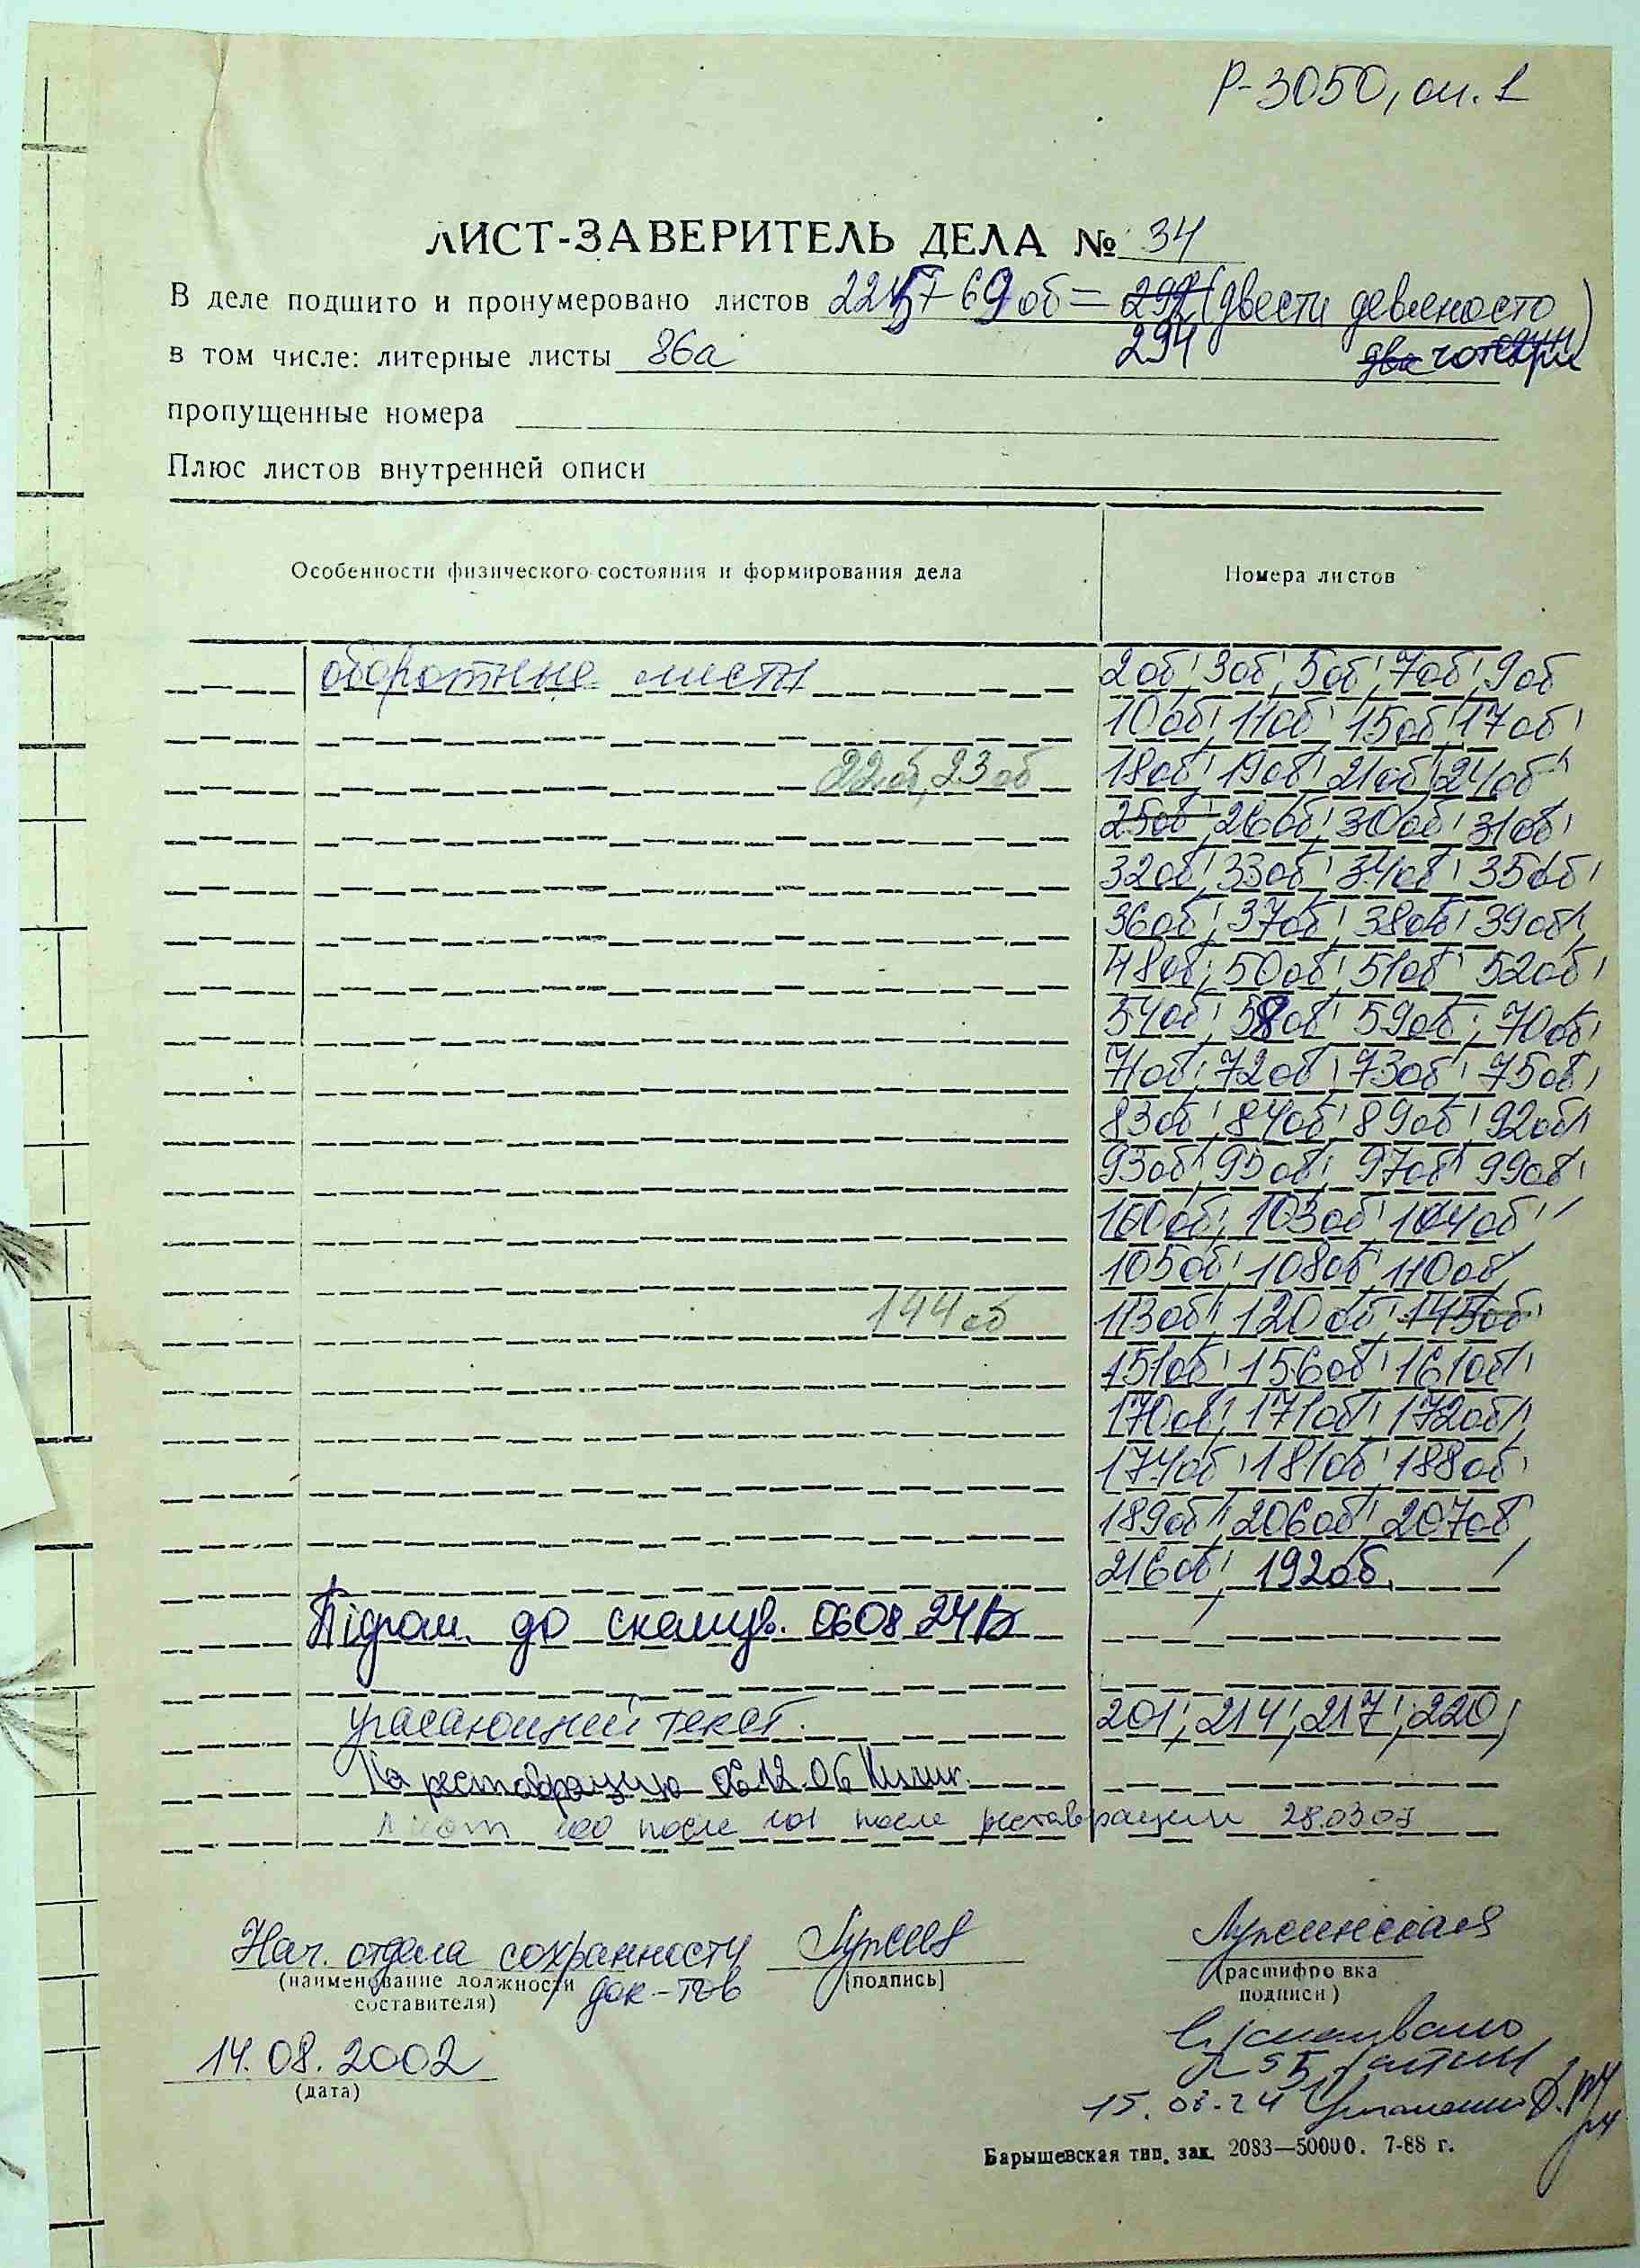 Р-3050, оп. 1
ЛИСТ-ЗАВЕРИТЕЛЬ ДЕЛА № 34
В деле подшито и пронумеровано листов 225+69об = 292 (двести девяносто
в том числе: литерные листы 86а 294 два чотири)
пропущенные номера
Плюс листов внутренней описи
Особенности физического состояния и формирования дела Номера листов
оборотные листы 2об, 3об, 5об, 7об, 9об
10об, 11об, 15об, 17об,
22об, 23об 18об, 19об, 21об, 24об
25об, 26об, 30об, 31об,
32об, 33об, 34об, 35об,
36об, 37об, 38об, 39об,
48об, 50об, 51об, 52об,
54об, 58об, 59об, 70об,
71об, 72об, 73об, 75об,
83об, 84об, 89об, 92об,
93об, 95об, 97об, 99об,
100об, 103об, 104об,
105об, 108об, 110об,
144об 113об, 120об, 145об,
151об, 156об, 161об,
170об, 171об, 172об,
174об, 181об, 188об,
189об, 206об, 207об,
216об, 192об.
Підгот. до сканув. 06 08 24
угасающий текст. 201, 214, 217, 220,
На реставрацию 06.12.06
Лист 100 после 101 после реставрации 28.03.07
Нач. отдела сохранности Лужинская
(наименование должности док-тов (подпись) (расшифровка
составителя) подписи)
14.08.2002
(дата)
15.08.24
Барышевская тип. зак. 2083—50000. 7-88 г.